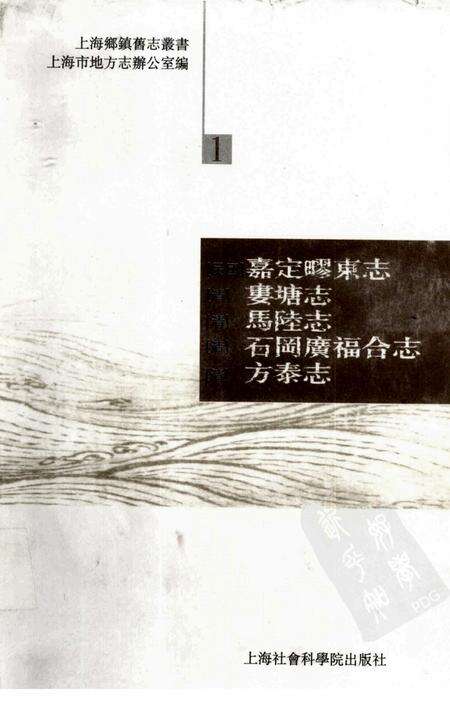 上海鄉鎮舊志叢書
上海市地方志辦公室編
1
嘉定疁東志
婁塘志
馬陸志
石岡廣福合志
方泰志
PDG
上海社會科學院出版社